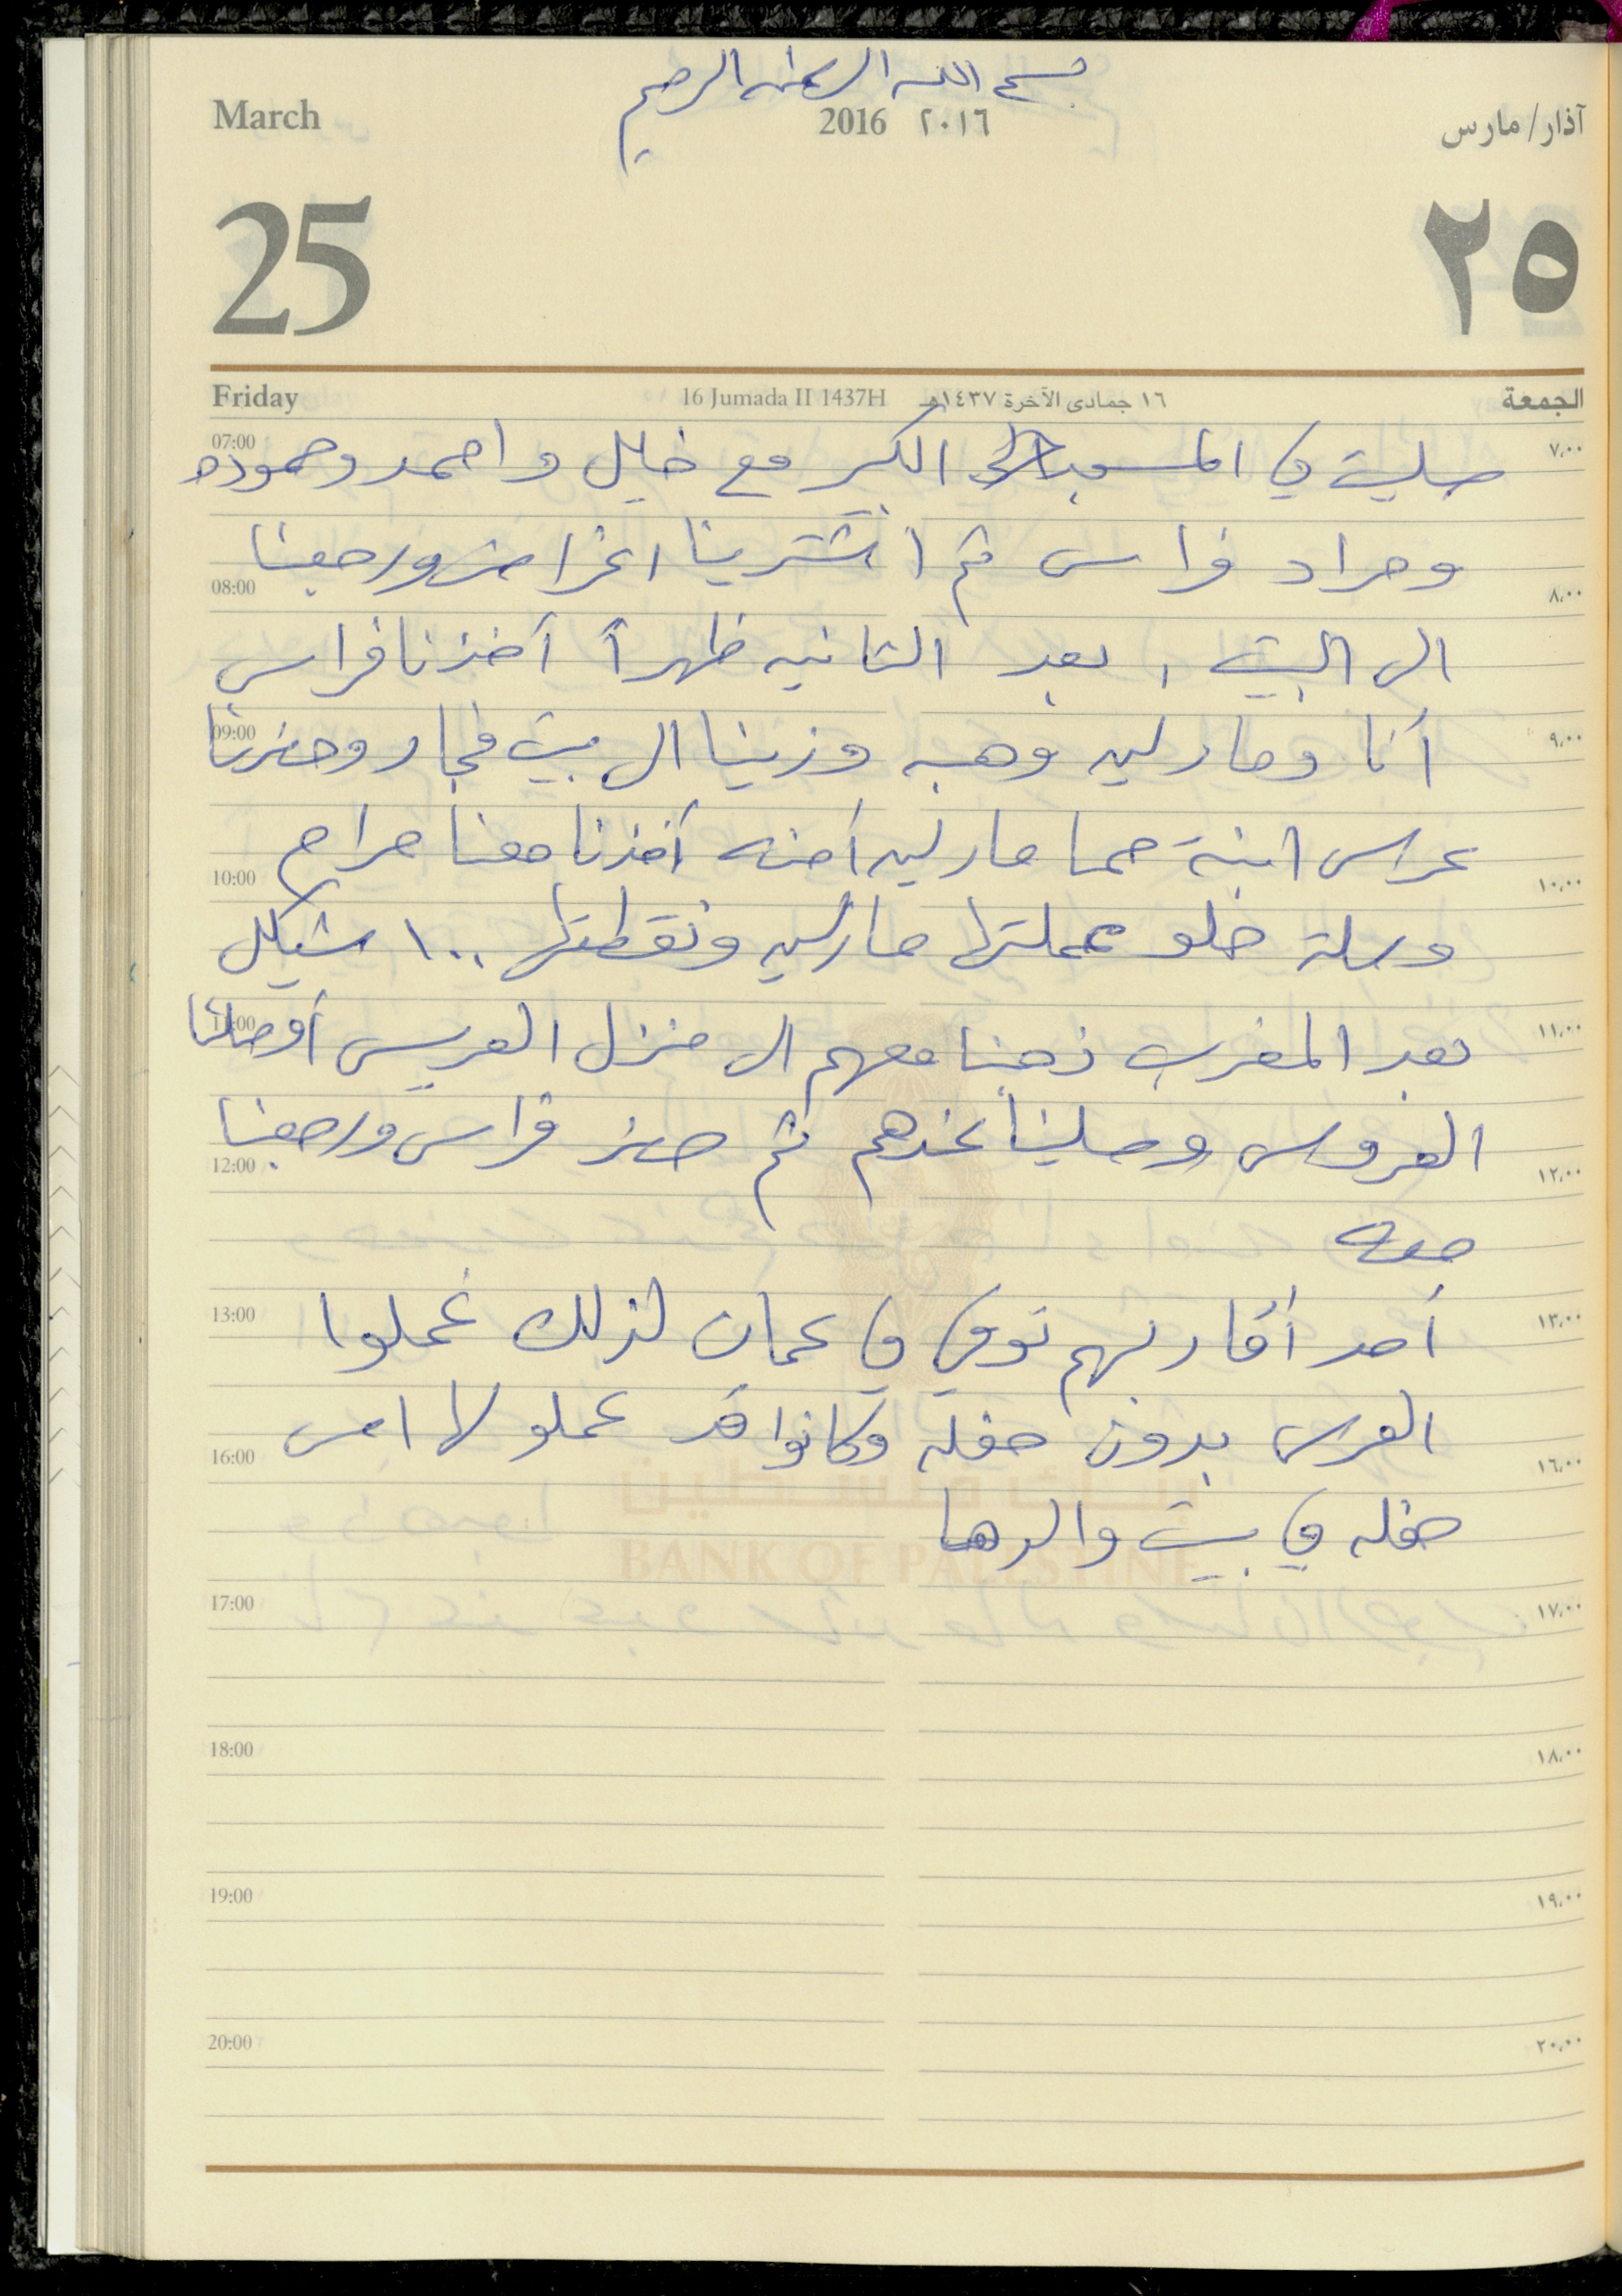 بسم الله الرحمن الرحيم
March 2016 ٢٠١٦ آذار/مارس
25 ٢٥
Friday 16 Jumada II 1437H ١٦ جمادى الآخرة ١٤٣٧هـ الجمعة
07:00 صليت في المسجد الكبير مع خليل واحمد وحموده ٧،٠٠
ومراد فراس ثم اشترينا اغراض ورجعنا
08:00 ٨،٠٠
الى البيت، بعد الثانيه ظهراً أخذنا فراس
09:00 أنا ومارلين وهبه وزينا الى بيت فجار وحضرنا ٩،٠٠
عرس ابنة حما مارلين آمنه أخذنا معنا حرام
10:00 ١٠،٠٠
وسلة حلو عملتها مارلين ونقطتها ١٠٠ شيكل
11:00 بعد المغرب ذهبنا معهم الى منزل العريس أوصلنا ١١،٠٠
العروس وصلينا عندهم ثم حضر فراس ورجعنا
12:00 ١٢،٠٠
معه
13:00 أحد أقاربهم توفي في عمان لذلك عملوا ١٣،٠٠
العرس بدون حفله وكانوا قد عملو لها امس
16:00 ١٦،٠٠
بنك فلسطين
حفله في بيت والدها
BANK OF PALESTINE
17:00 ١٧،٠٠
18:00 ١٨،٠٠
19:00 ١٩،٠٠
20:00 ٢٠،٠٠